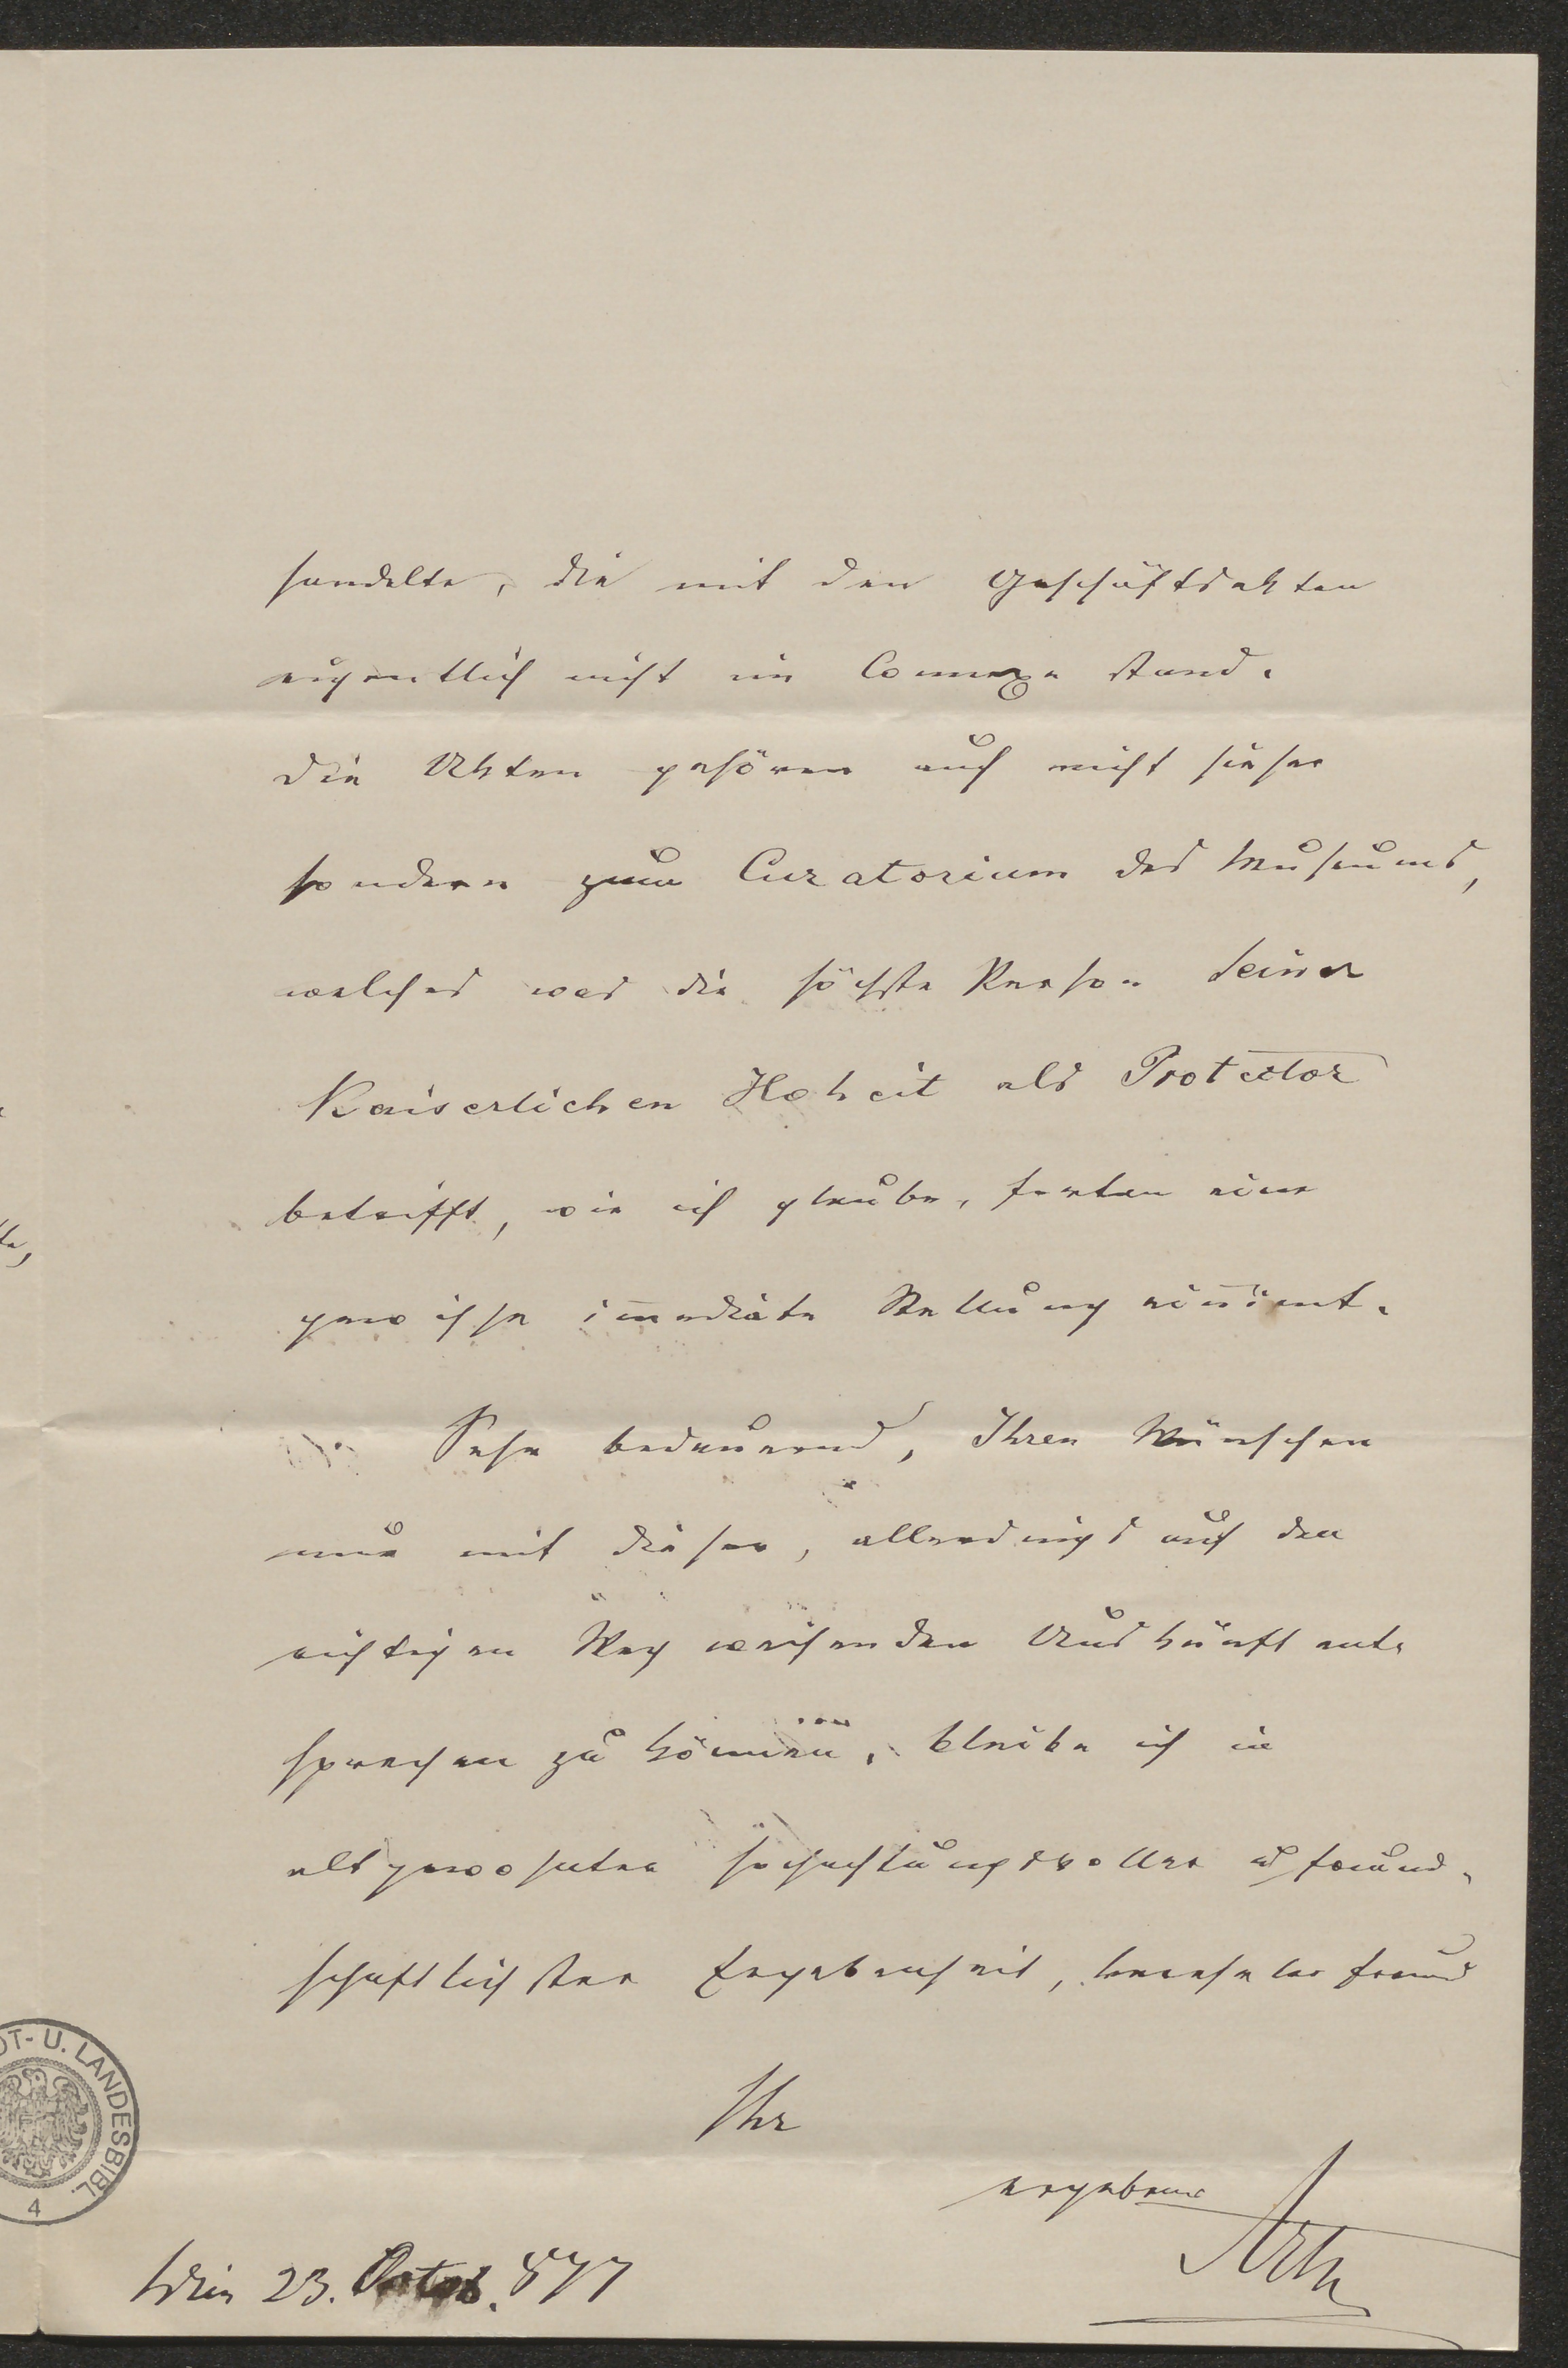 handelte, die mit den Geschäftsakten
eigentlich nicht im Connexe stand.
Die Akten gehören auch nicht hieher
sondern zum Curatorium des Museums,
welches was die höchste Person Seiner
Kaiserlichen Hoheit als Protector
betrifft, wie ich glaube, fortan eine
gewisse im̅ediate Stellung ein̅imt.
Sehr bedauernd, Ihren Wünschen
nur mit dieser, allerdings auf den
richtigen Weg weisenden Auskunft ent-
sprechen zu können, bleibe ich in
altgewohnter hochachtungsvoller u freund-
schaftlichster Ergebenheit, verehrter Freund
Ihr
ergebener
Arth
Wien 23. Octob. 877
T- U. LANDESBIBL.
4